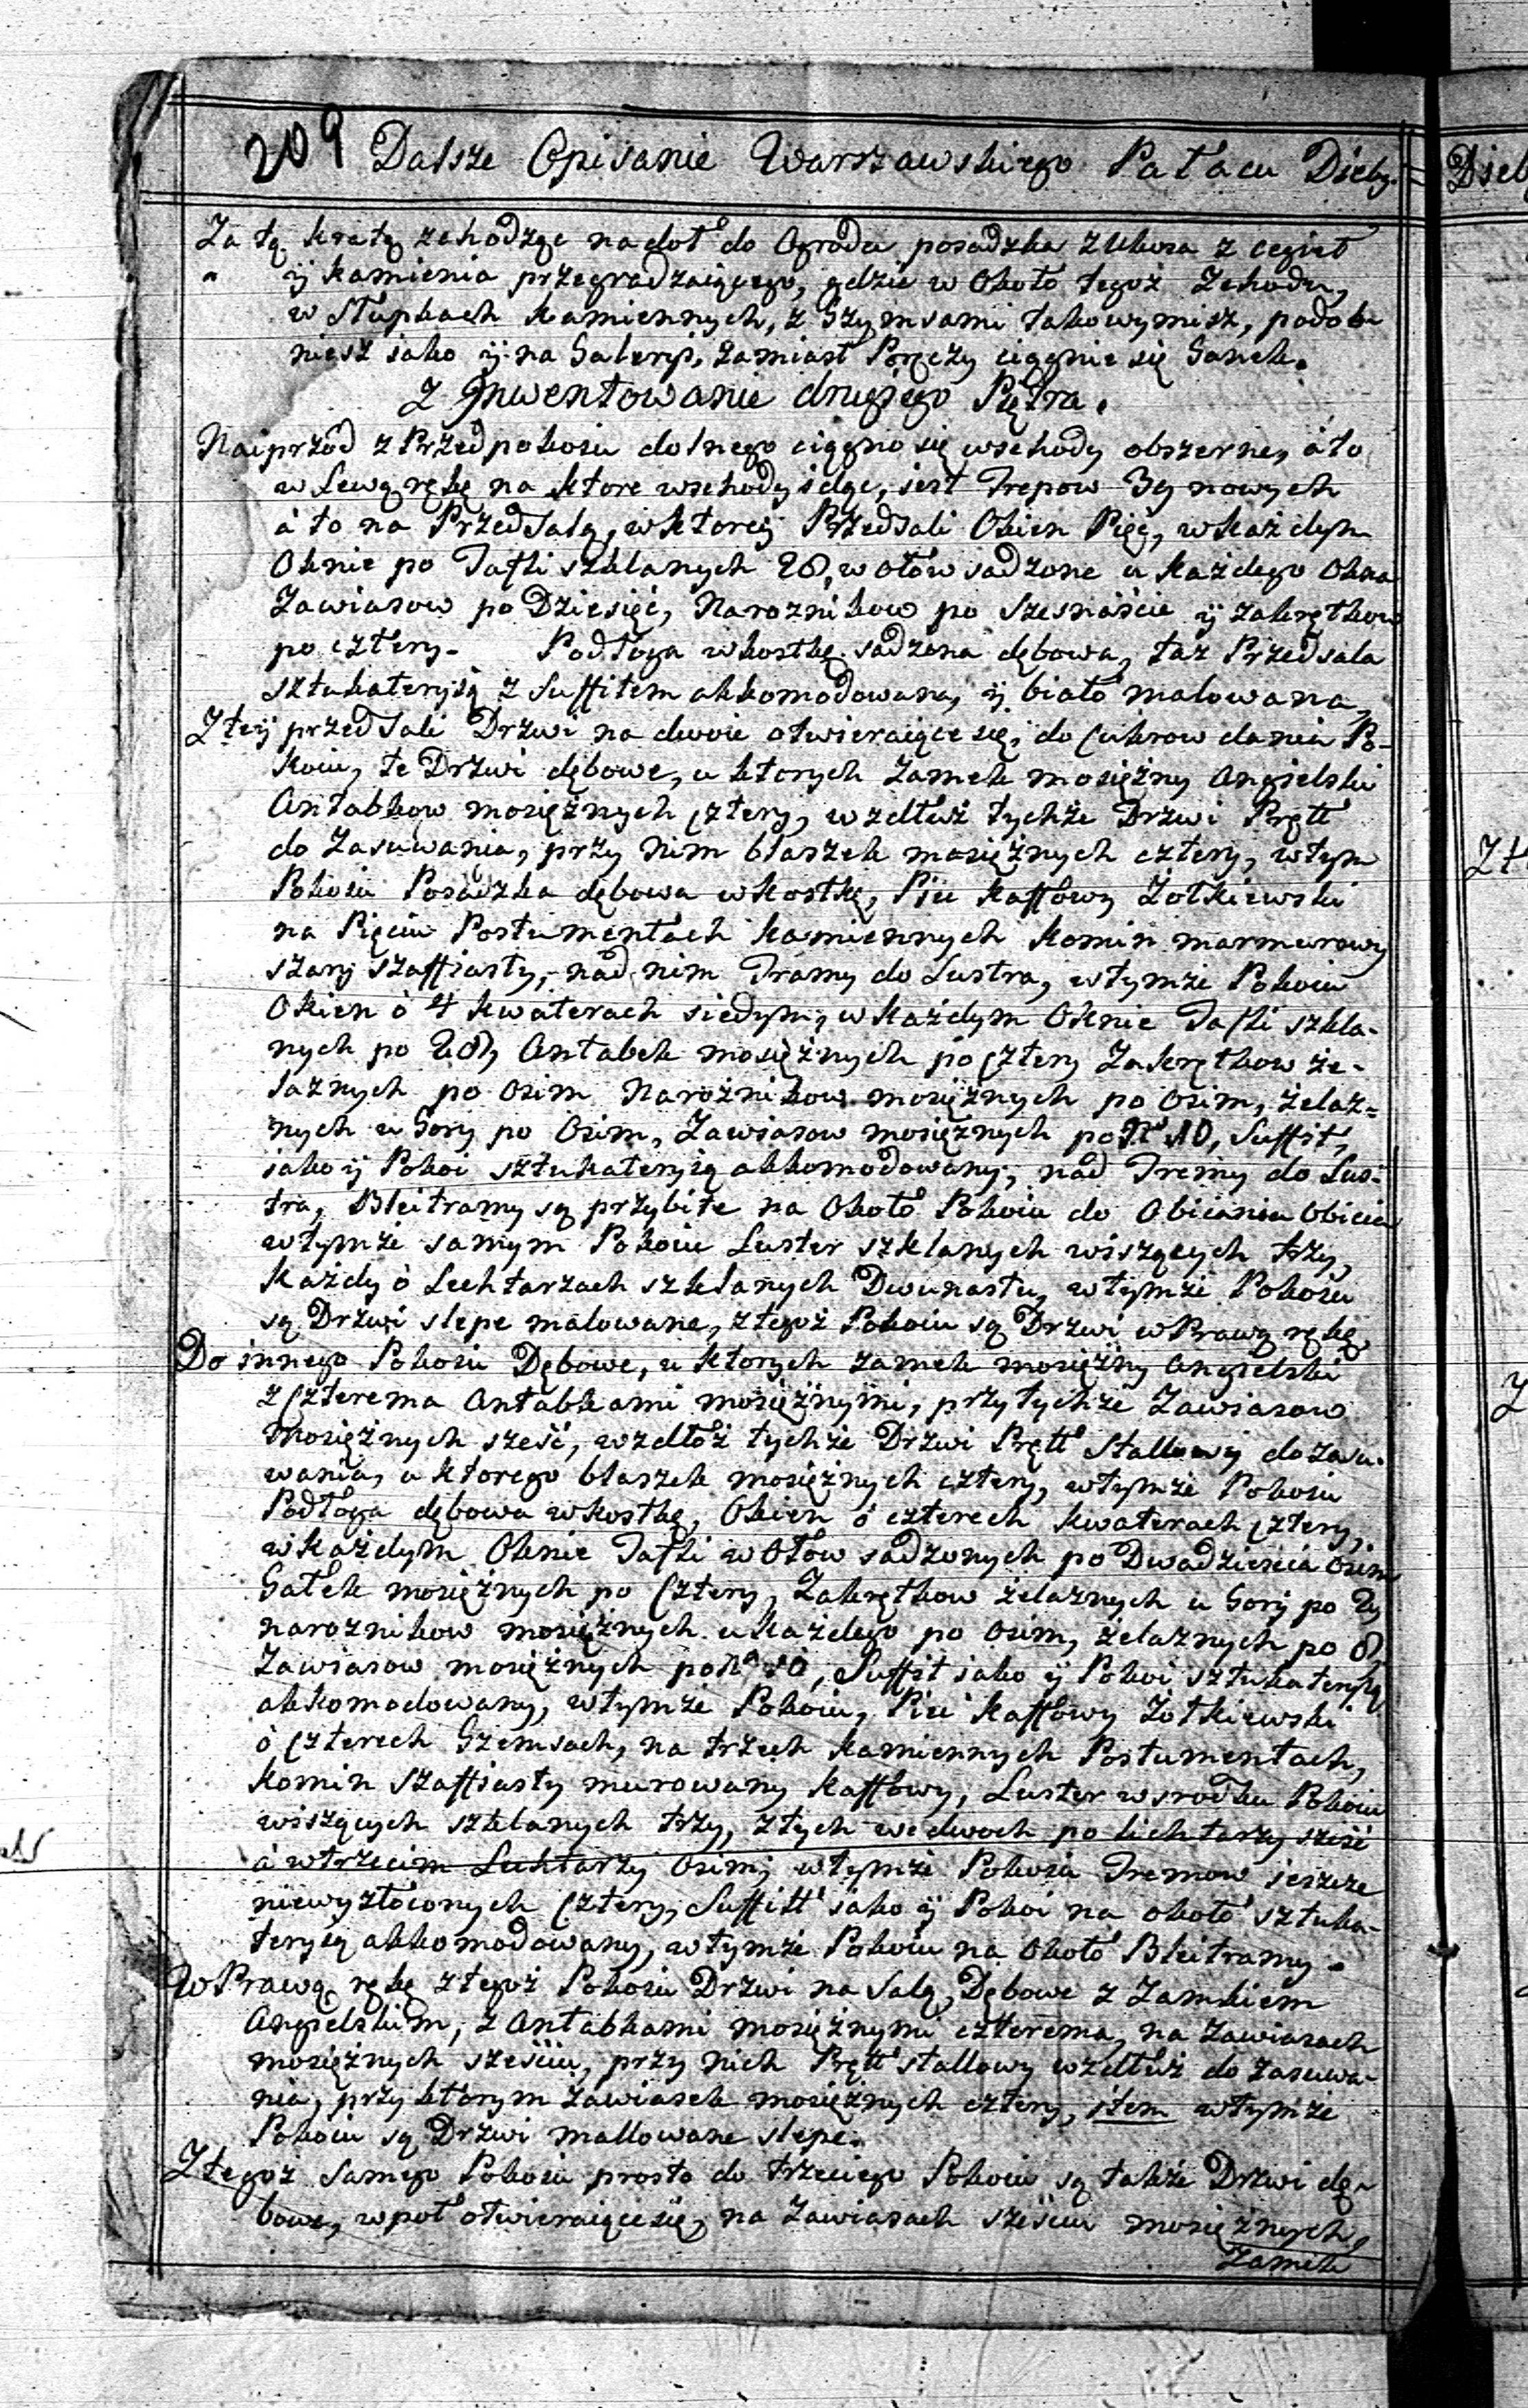 209 Dalsze Opisanie Warszawskiego Pałacu Dieby.
Za tą kratą zchodząc nadoł do Ogrodu posadzka z Ukosa z cegieł
ÿ kamienia przegradzaiącego, gdzie w Około tegoż Zchodu,
w Słupkach kamiennych, z Gzymsami takowymisz, podob
niesz iako ÿ na Galeryi, zamiast Poręczy ciągnie się Ganek.
Z Jnwentowanie drugiego Piętra.
Naiprzod z Przedpokoiu dolnego ciągno się wschody obszerne, áto
w Lewą rękę na ktore wschody idąc, iest Trepow 39 nowych
á to na Przedsalą, w ktorey Przedsali Okien Pięć, w każdym
Oknie po Tafli szklanych 28, w ołow sadzone u każdego Okna
Zawiasow po Dziesięć, Naroznikow po szesnaście ÿ zakrętkow
po cztery. Podłoga wkostkę sadzona dębowa, taż Przedsala
sztukateryią z Suffitem akkomodowana, ÿ biało malowana,
Z teÿ przedsali Drzwi na dwoie otwieraiące się, do Cukrow dania Po-
koiu, te Drzwi dębowe, u ktorych Zamek mosiężny Angielski
Antabkow mosiężnych cztery, wzdłuż tychże Drzwi Prętt
do Zasuwania, przy nim blaszek mosiężnych cztery, wtym
Pokoiu Posadzka dębowa wkostkę, Piec kafflowy Żołkiewski
na Pięciu Postumentach kamiennych Komin marmurowy
szary szaffiasty, nad nim Tramy do Lustra, wtymże Pokoiu
Okien ó 4 kwaterach siedym, w każdym Oknie Tafli szkla-
nych po 28, Antabek mosiężnych po cztery Zakrętkow że-
laznych po osim Narożnikow mosiężnych po osim, żelaz=
nych u Gory po Osim, Zawiasow mosiężnych po N 10, Suffit,
iako ÿ Pokoi sztukateryią akkomodowany, nad Tremy do Lus-
tra, Bleitramy są przybite na Około Pokoiu do Obiciania Obicia
wtymże samym Pokoiu Luster szklanych wiszących trzy,
każdy ó Lichtarzach szklanych Dwunastu, wtymże Pokoiu
są Drzwi slepe malowane, ztegoż Pokoiu są Drzwi w Prawą rękę,
Do innego Pokoiu Dębowe, u ktorych zamek mosiężny Angielski
z Czterema Antabkami mosiężnymi, przytychże Zawiasow
mosiężnych sześć, wzdłoż tychże Drzwi Prętt Stallowy do zasu-
wania, u ktorego blaszek mosiężnych cztery, wtymże Pokoiu
Podłoga dębowa wkostkę, Okien ó czterech kwaterach cztery,
w każdym Oknie Tafli w Ołow sadzonych po Dwadzieścia osim
Gałek mosiężnych po Cztery, Zakrętkow żelaznych u Gory po
naroznikow mosiężnych u każdego po osim, żelaznych po 8,
Zawiasow mosiężnych po N 10, Suffit iako ÿ Pokoi sztukateryią
akkomodowany, wtymże Pokoiu, Piec kafflowy Żołkiewski
ó czterech Gzemsach, na trzech kamiennych Postumentach,
Komin szaffiasty murowany kafflowy, Luster wsrodku Pokoiu
wiszących szklanych trzy, ztych wedwoch po lichtarzy sześć
á wtrzecim Lichtarzy Osim, wtymże Pokoiu Tremow ieszcze
niewyzłoconych Cztery, Suffitt iako ÿ Pokoi na około sztuka-
teryią akkomodowany, wtymże Pokoiu na Około Bleitramy.
W Prawą rękę ztegoż Pokoiu Drzwi na Salą, Dębowe z Zamkiem
Angielskim, z Antabkami mosiężnymi czterema, na Zawiasach
mosiężnych sześciu, przy nich Prętt stallowy wzdłuż do zasuwa-
nia, przy ktorym Zawiasek mosiężnych cztery, item wtymże
Pokoiu są Drzwi mallowane slepe.
Ztegoż Samego Pokoiu prosto do trzeciego Pokoiu są także Drzwi dę-
bowe, wpoł otwieraiące się, na Zawiasach sześciu mosiężnych,
Zamek